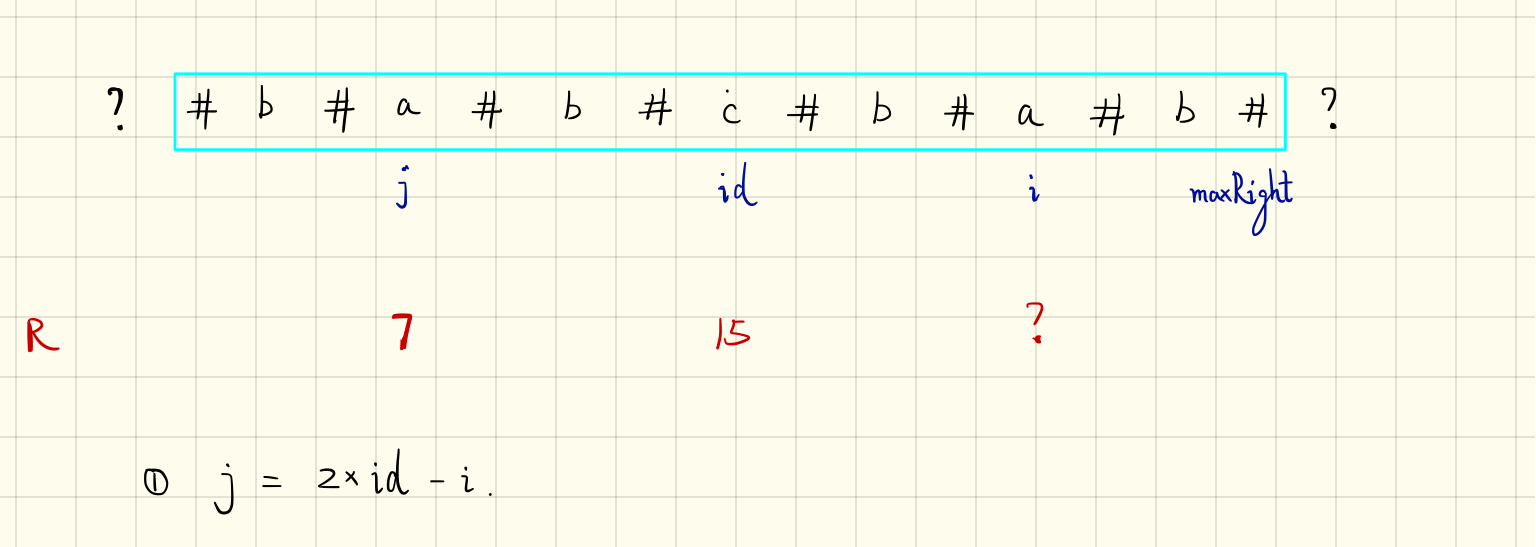 ? # b # a # b # c # b # a # b # ?
j id i maxRight
R 7 15 ?
① j = 2×id - i.